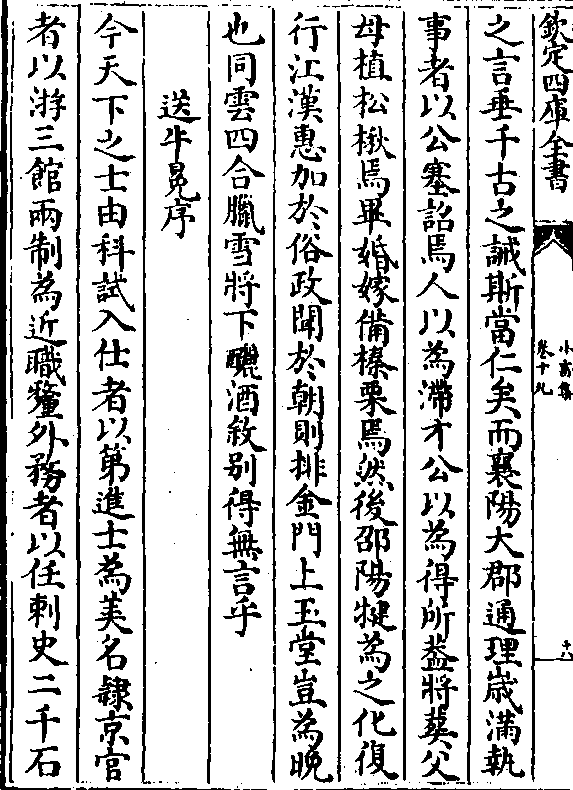 欽定四庫全書
小畜集
卷十九
十八
之言垂千古之誡斯當仁矣而襄陽大郡通理嵗滿執
事者以公塞詔焉人以為滯才公以為得所葢將葬父
母植松楸焉畢婚嫁備榛栗焉然後邵陽犍為之化復
行江漢惠加於俗政聞於朝則排金門上玉堂豈為晚
也同雲四合臘雪將下釃酒敘别得無言乎
送牛冕序
今天下之士由科試入仕者以第進士為美名隷京官
者以游三館兩制為近職釐外務者以任刺史二千石